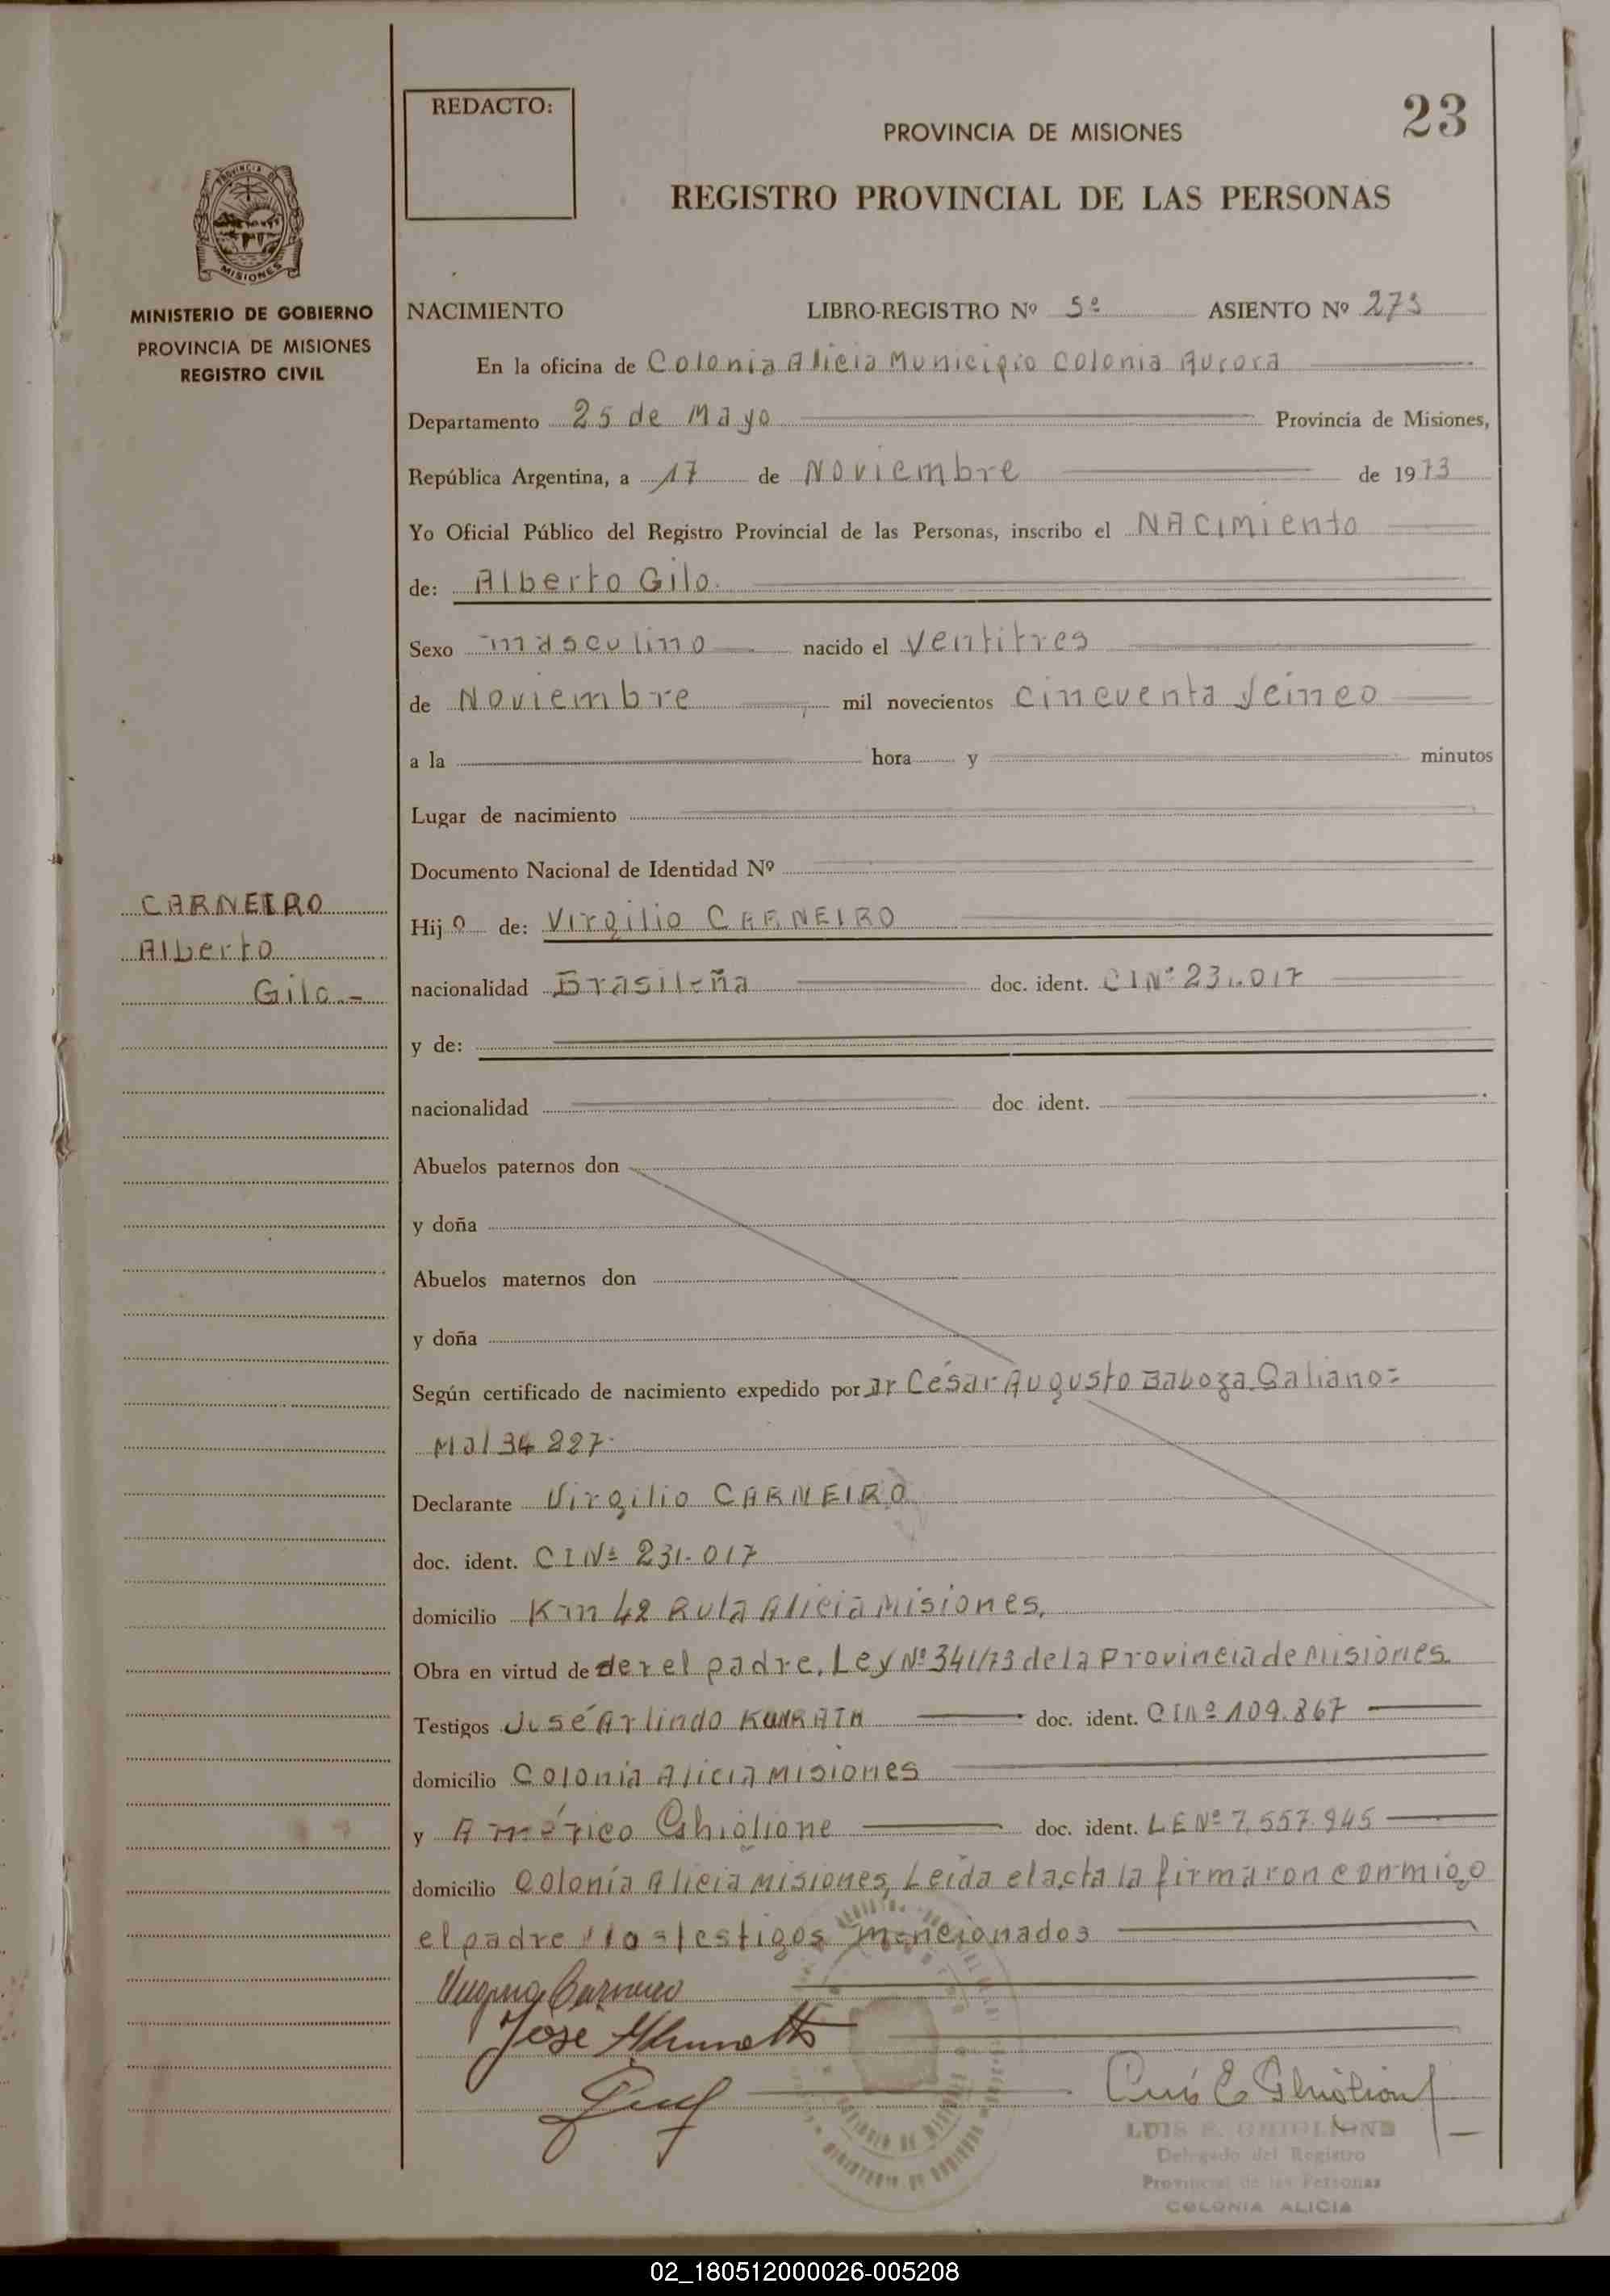 REDACTO:
23
PROVINCIA DE MISIONES
REGISTRO PROVINCIAL DE LAS PERSONAS
PROVINCIA DE
MISIONES
MINISTERIO DE GOBIERNO
PROVINCIA DE MISIONES
REGISTRO CIVIL
NACIMIENTO LIBRO-REGISTRO Nº 5º ASIENTO Nº 273
En la oficina de Colonia Alicia Municipio Colonia Aurora
Departamento 25 de Mayo Provincia de Misiones,
República Argentina, a 17 de Noviembre de 1973
Yo Oficial Público del Registro Provincial de las Personas, inscribo el NACIMiento
de: Alberto Gilo.
Sexo masculino nacido el Ventitres
de Noviembre mil novecientos cincuenta y cinco
a la hora y minutos
Lugar de nacimiento
Documento Nacional de Identidad Nº
CARNEIRO
Alberto
Gilo.-
Hijo de: Virgilio CARNEIRO
nacionalidad Brasileña doc. ident. CI Nº 231.017
y de:
nacionalidad doc. ident.
Abuelos paternos don
y doña
Abuelos maternos don
y doña
Según certificado de nacimiento expedido por Dr César Augusto Baboza Galiano=
Mal 34 227.
Declarante Virgilio CARNEIRO
doc. ident. CI Nº 231.017
domicilio Km 42 Ruta Alicia Misiones.
Obra en virtud de der el padre. Ley Nº 341/73 de la Provincia de Misiones.
Testigos José Arlindo KUNRATH doc. ident. CI Nº 109.867
domicilio Colonia Alicia Misiones
y Américo Ghiglione doc. ident. LE Nº 7.557.945
domicilio Colonia Alicia Misiones, Leida el acta la firmaron conmigo
el padre y los testigos mencionados
Jose
Luis E Ghiglione
LUIS E. GHIGLIONE
Delegado del Registro
Provincial de las Personas
COLONIA ALICIA
02_180512000026-005208